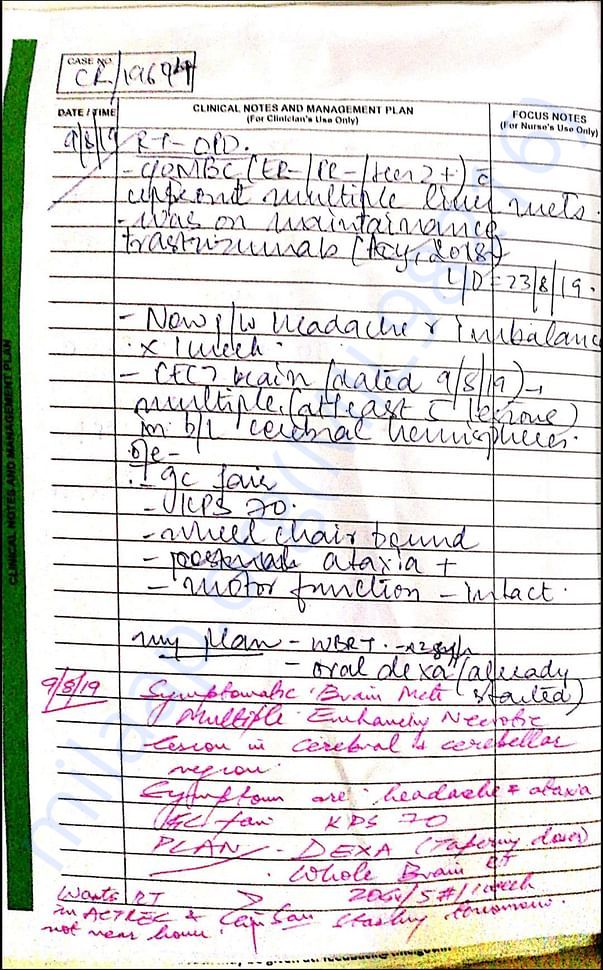 CASE NO.
CR/1969
DATE / TIME
CLINICAL NOTES AND MANAGEMENT PLAN
(For Clinician's Use Only)
FOCUS NOTES
(For Nurse's Use Only)
9/8/19 RT-OPD.
(ER-/PR-/Her2+) c̄
upfront multiple liver mets.
- was on maintainance
trastuzumab 2018)
L/D = 23/8/19.
- Now headache & imbalance
x 1 week.
- CECT brain (dated 9/8/19) →
multiple (atleast lesions)
in b/l cerebral hemispheres.
o/e -
- gc fair
- KPS 70.
- wheel chair bound
- ataxia +
- motor function - intact.
my plan - WBRT.
- oral dexa (already
started)
9/8/19 Symptomatic Brain Mets
Multiple Enhancing Necrotic
lesion in cerebral & cerebellar
region.
Symptom are headache & ataxia
GC fair KPS 70
PLAN - DEXA (Tapering doses)
. Whole Brain RT
20Gy/5#/1week
starting tomorrow.
Wants RT
in ACTREC &
not near home.
CLINICAL NOTES AND MANAGEMENT PLAN